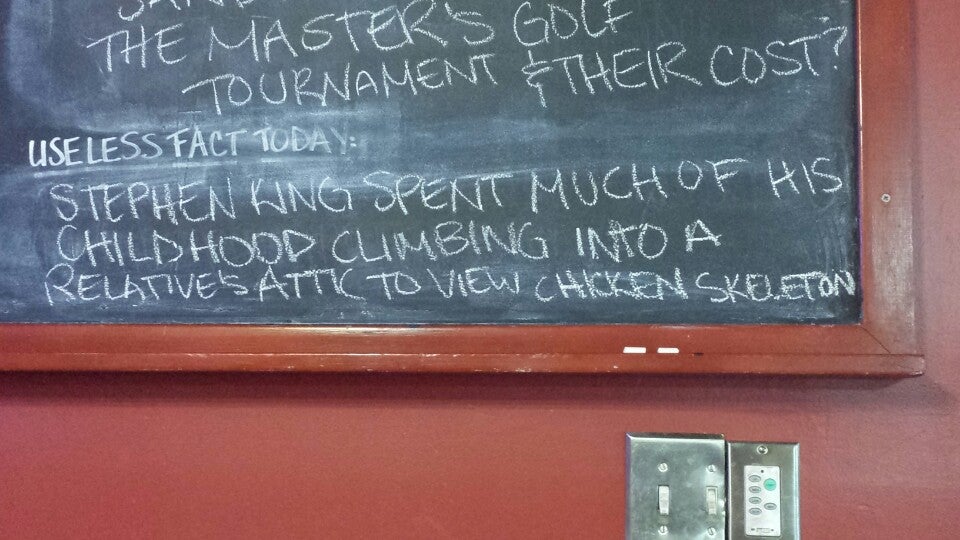 THE MASTER'S GOLF
TOURNAMENT & THEIR COST?
USELESS FACT TODAY:
STEPHEN KING SPENT MUCH OF HIS
CHILDHOOD CLIMBING INTO A
RELATIVE'S ATTIC TO VIEW CHICKEN SKELETON